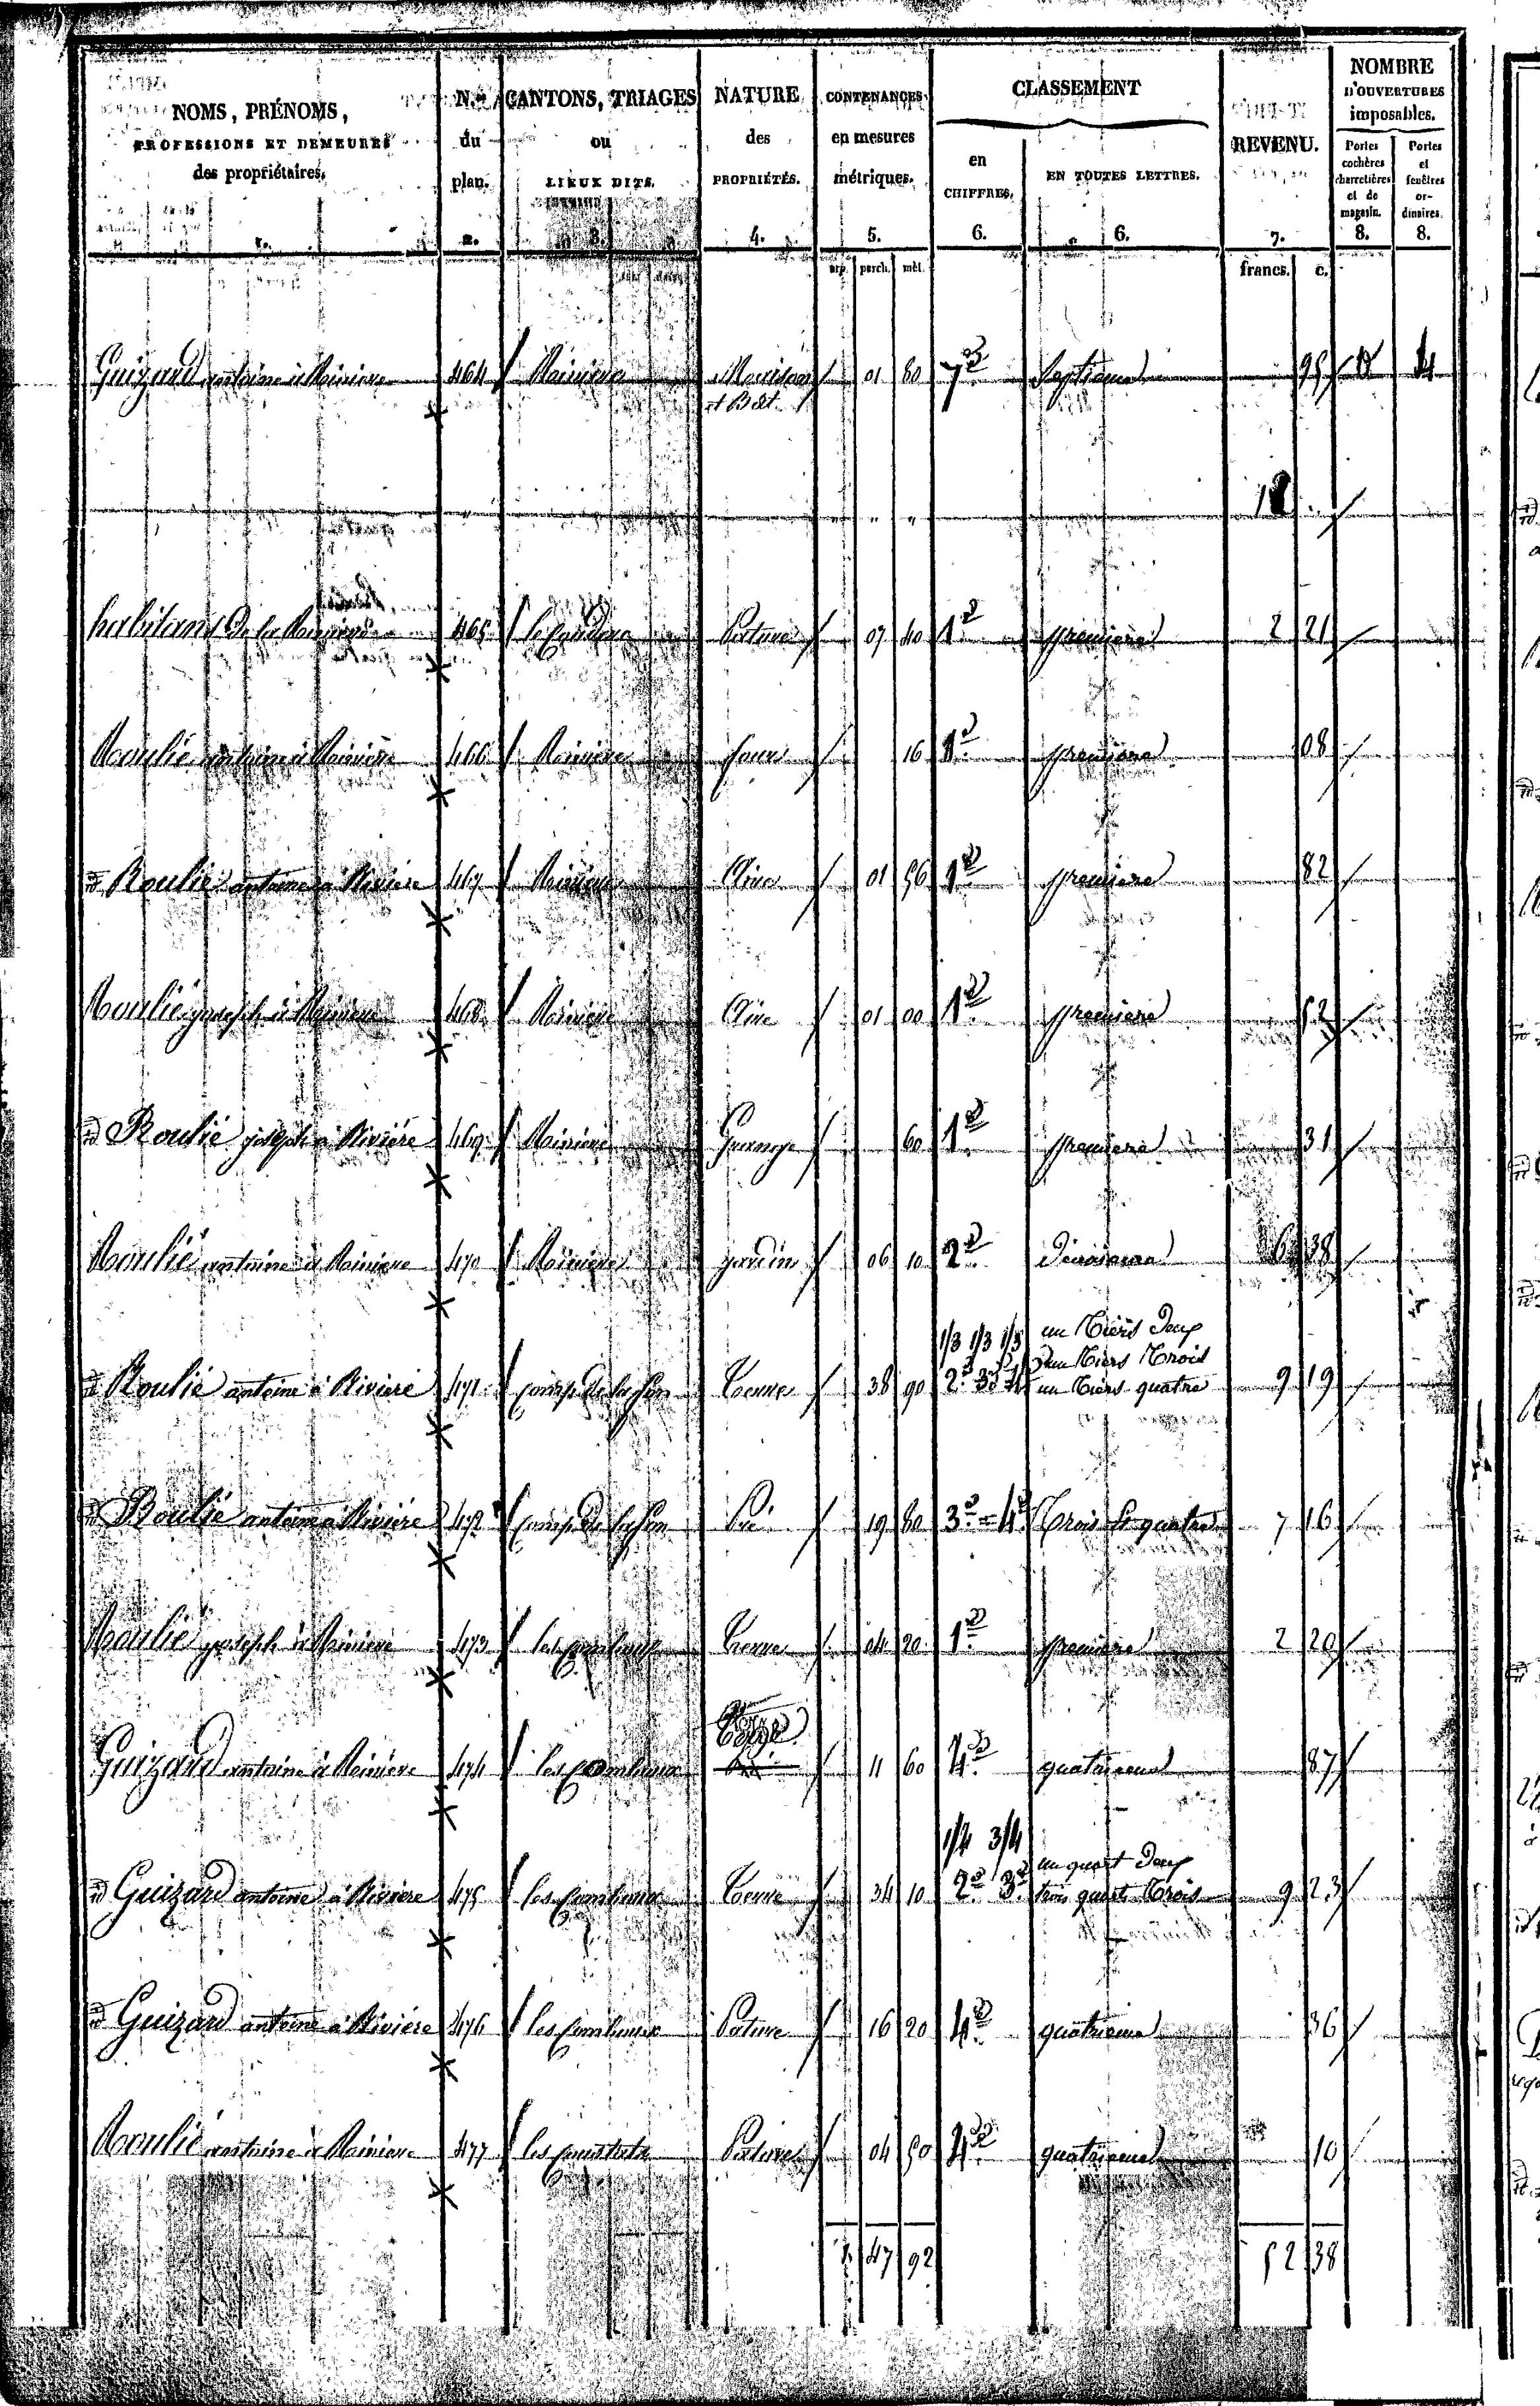 NOMS, PRÉNOMS, PROFESSIONS ET DEMEURES des propriétaires.
N.os du plan.
CANTONS, TRIAGES ou LIEUX DITS.
NATURE des PROPRIÉTÉS.
CONTENANCES en mesures métriques.
CLASSEMENT
en CHIFFRES.
EN TOUTES LETTRES.
REVENU.
NOMBRE D'OUVERTURES imposables.
Portes cochères charretières et de magasin.
Portes et fenêtres ordinaires.
1. 2. 3. 4. 5. 6. 6. 7. 8. 8.
arp. perch. mèt. francs. c.
Guizard antoine à Rivière 464 Rivière Maison et Bât. 01 80 7e Septieme 95 4
" " " 18 "
habitans de la Rivière 465 Pature 07 40 1e premiere 2 21
Roulié antoine à Rivière 466 Rivière four 16 1e premiere 08
id Roulié antoine à Rivière 467 Rivière Aire 01 56 1e premiere 82
Roulié joseph à Rivière 468 Rivière Aire 01 00 1e premiere 52
id Roulié joseph à Rivière 469 Rivière Grange 60 1e premiere 31
Roulié antoine à Rivière 470 Rivière jardin 06 10 2e Deuxieme 6 38
1/3 1/3 1/3 un tiers Deux
un tiers trois
id Roulié antoine à Rivière 471 Terre 38 90 2e 3e 4e un tiers quatre 9 19
id Roulié antoine à Rivière 472 Pré 19 80 3e = 4e trois quatre 7 16
Roulié joseph à Rivière 473 les Terre 04 20 1e premiere 2 20
Guizard antoine à Rivière 474 les 11 60 4e quatrieme 87
1/4 3/4 un quart Deux
id Guizard antoine à Rivière 475 les Terre 34 10 2e 3e trois quarts trois 9 23
id Guizard antoine à Rivière 476 les Pature 16 20 4e quatrieme 36
Roulié antoine à Rivière 477 les Pature 04 50 4e quatrieme 10
1 47 92 52 38